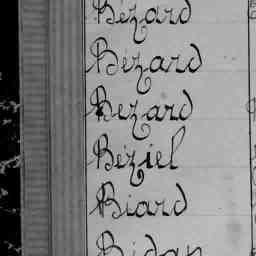 Bézard
Bézard
Bezard
Béziel
Biard
Bidan